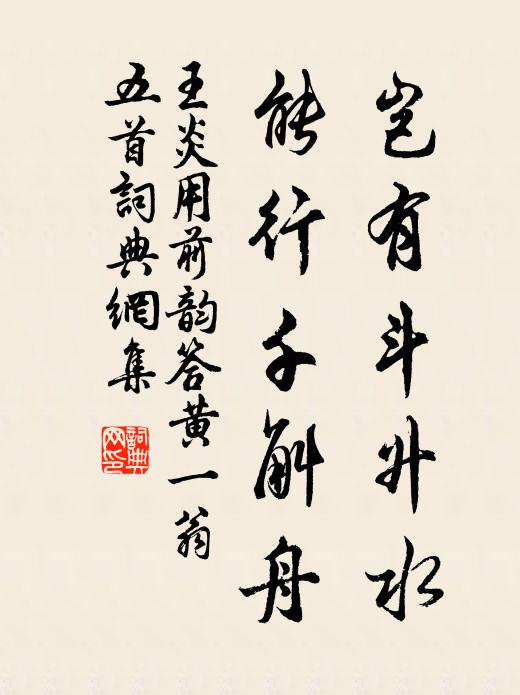 岂有斗升水
能行千斛舟
王炎用前韵答黄一翁
五首詞典網集
詞典網印